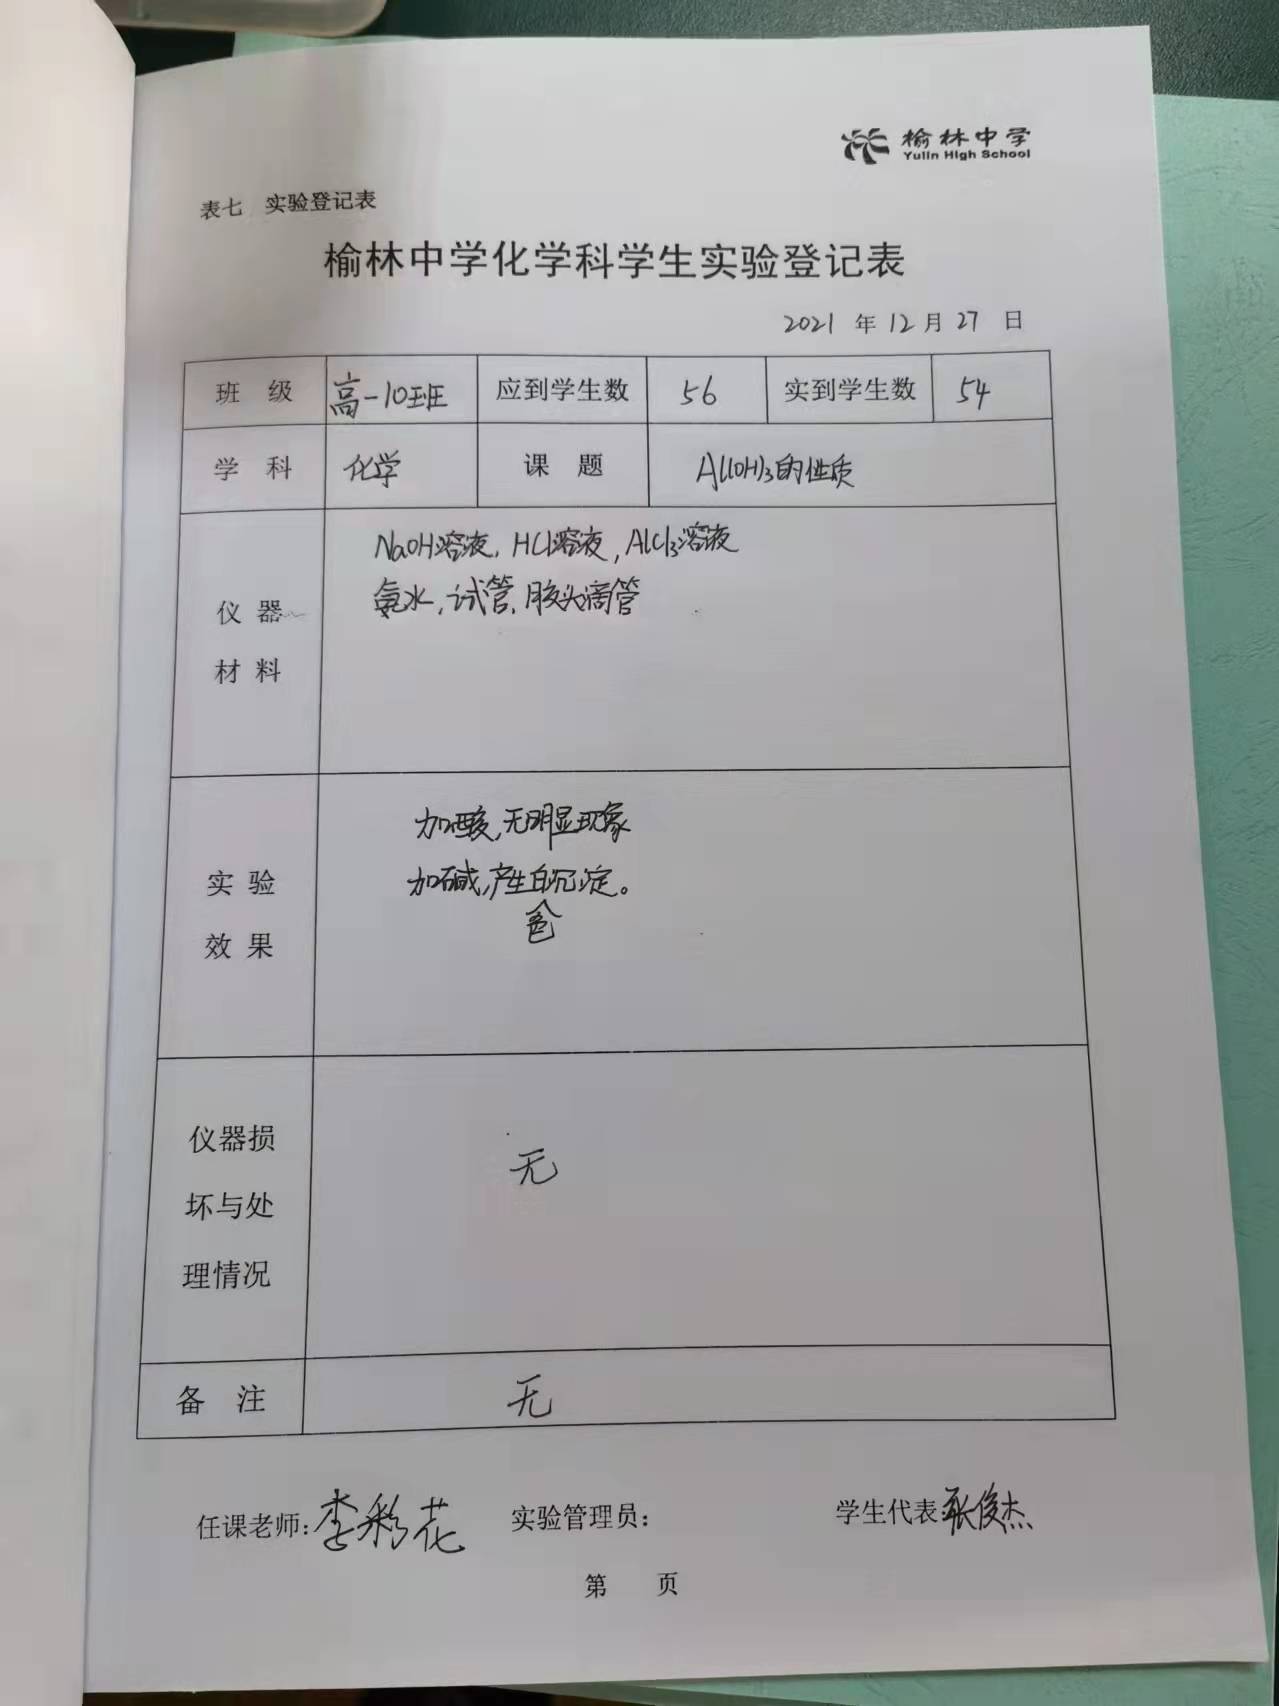 榆林中学
Yulin High School
表七 实验登记表
榆林中学化学科学生实验登记表
2021 年 12 月 27 日
班 级 高一10班 应到学生数 56 实到学生数 54
学 科 化学 课 题 Al(OH)3的性质
仪 器
材 料
NaOH溶液, HCl溶液, AlCl3溶液
氨水, 试管, 胶头滴管
实 验
效 果
加酸, 无明显现象
加碱, 产生白色沉淀。
仪器损
坏与处
理情况
无
备 注 无
任课老师: 李彩花 实验管理员: 学生代表 张俊杰
第 页